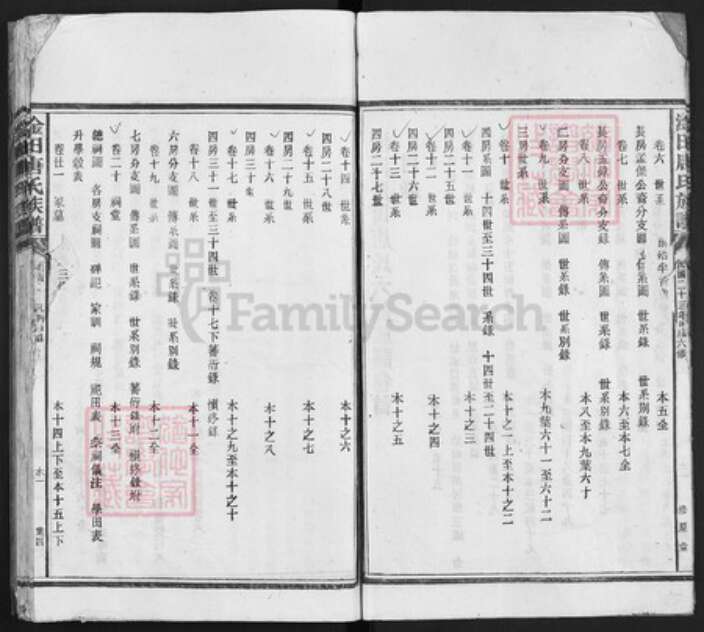 卷六 世系
本五全
長房
公裔分支圖 世系圖 世系錄 世系別錄
卷七 世系
本六至本七全
公裔分支錄 傳系圖 世系錄 世系別錄
卷八 世系
本八至本九葉六十
二房分支圖 傳系圖 世系錄 世系別錄
卷九 世系
本九葉六十一至六十二
三房世系
卷十 世系
本十之一上至本十之二
四房系圖 十四世至三十四世 系錄 十四世至二十四世
卷十一 世系
本十之三
四房二十五世
卷十二 世系
本十之四
四房二十六世
卷十三 世系
本十之五
四房二十七世
卷十四 世系
本十之六
四房二十八世
卷十五 世系
本十之七
四房二十九世
卷十六 世系
本十之八
四房三十世
卷十七 世系
本十之九至本十之十
四房三十一世至三十四世 卷十七下蕃衍錄
卷十八 世系
本十一全
六房分支圖 傳系圖 世系錄 世系別錄
卷十九 世系
本十二全
七房分支圖 傳系圖 世系錄 世系別錄 蕃衍錄附
卷二十 祠堂
本十三全
總祠圖 各房支祠圖 碑記 家訓 祠規 祀田表 祭祠儀注 學田表
升學穀表
卷廿一 冢墓
本十四上下至本十五上下
FamilySearch
唐氏族譜